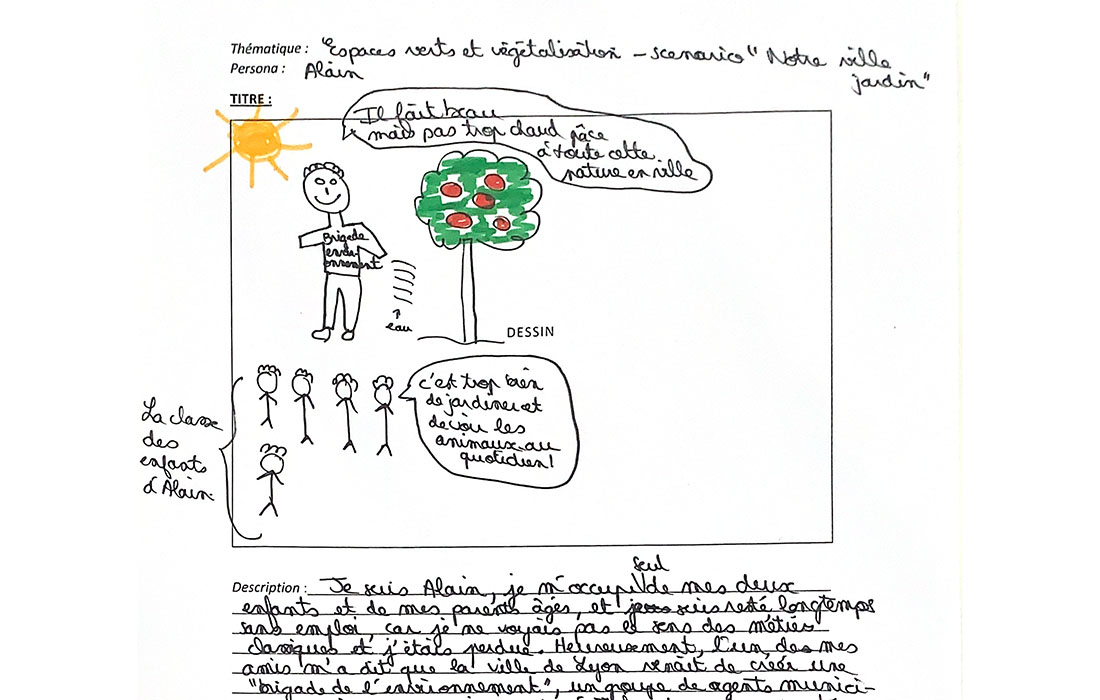 Thématique : "Espaces verts et végétalisation – scenario "Notre ville
jardin"
Persona : Alain
TITRE :
Il fait beau
mais pas trop chaud grâce
à toute cette
nature en ville
Brigade
envir
onnement
eau
DESSIN
c'est trop bien
de jardiner et
de voir les
animaux au
quotidien!
La classe
des
enfants
d'Alain
seul
Description : Je suis Alain, je m'occupe de mes deux
enfants et de mes parents âgés, et je suis resté longtemps
sans emploi, car je ne voyais pas le sens des métiers
classiques et j'étais perdue. Heureusement, l'un des mes
amis m'a dit que la ville de Lyon venait de créer une
"brigade de l'environnement", un groupe de agents munici-